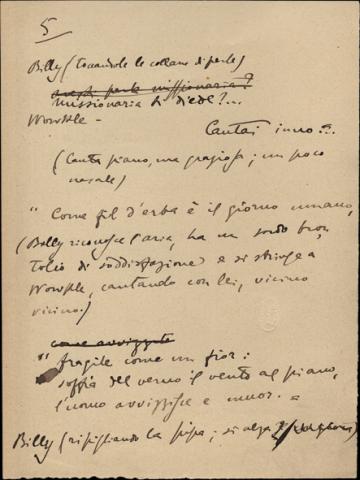 5
Billy (toccandole le collane di perle)
questa perla missionaria?
missionaria ti diede?...
Wowkle -
Cantai inno?...
(Canta piano, ma graziosa; un poco
nasale)
" Come fil d'erba è il giorno umano,
(Billy riconosce l'aria, ha un sordo bron
tolio di soddisfazione e si stringe a
Wowkle, cantando con lei, vicino
vicino.)
come avvizzito
" fragile come un fior:
soffia del verno il vento al piano,
l'uomo avvizzisce e muor. "
Billy (ripigliando la pipa; si alza